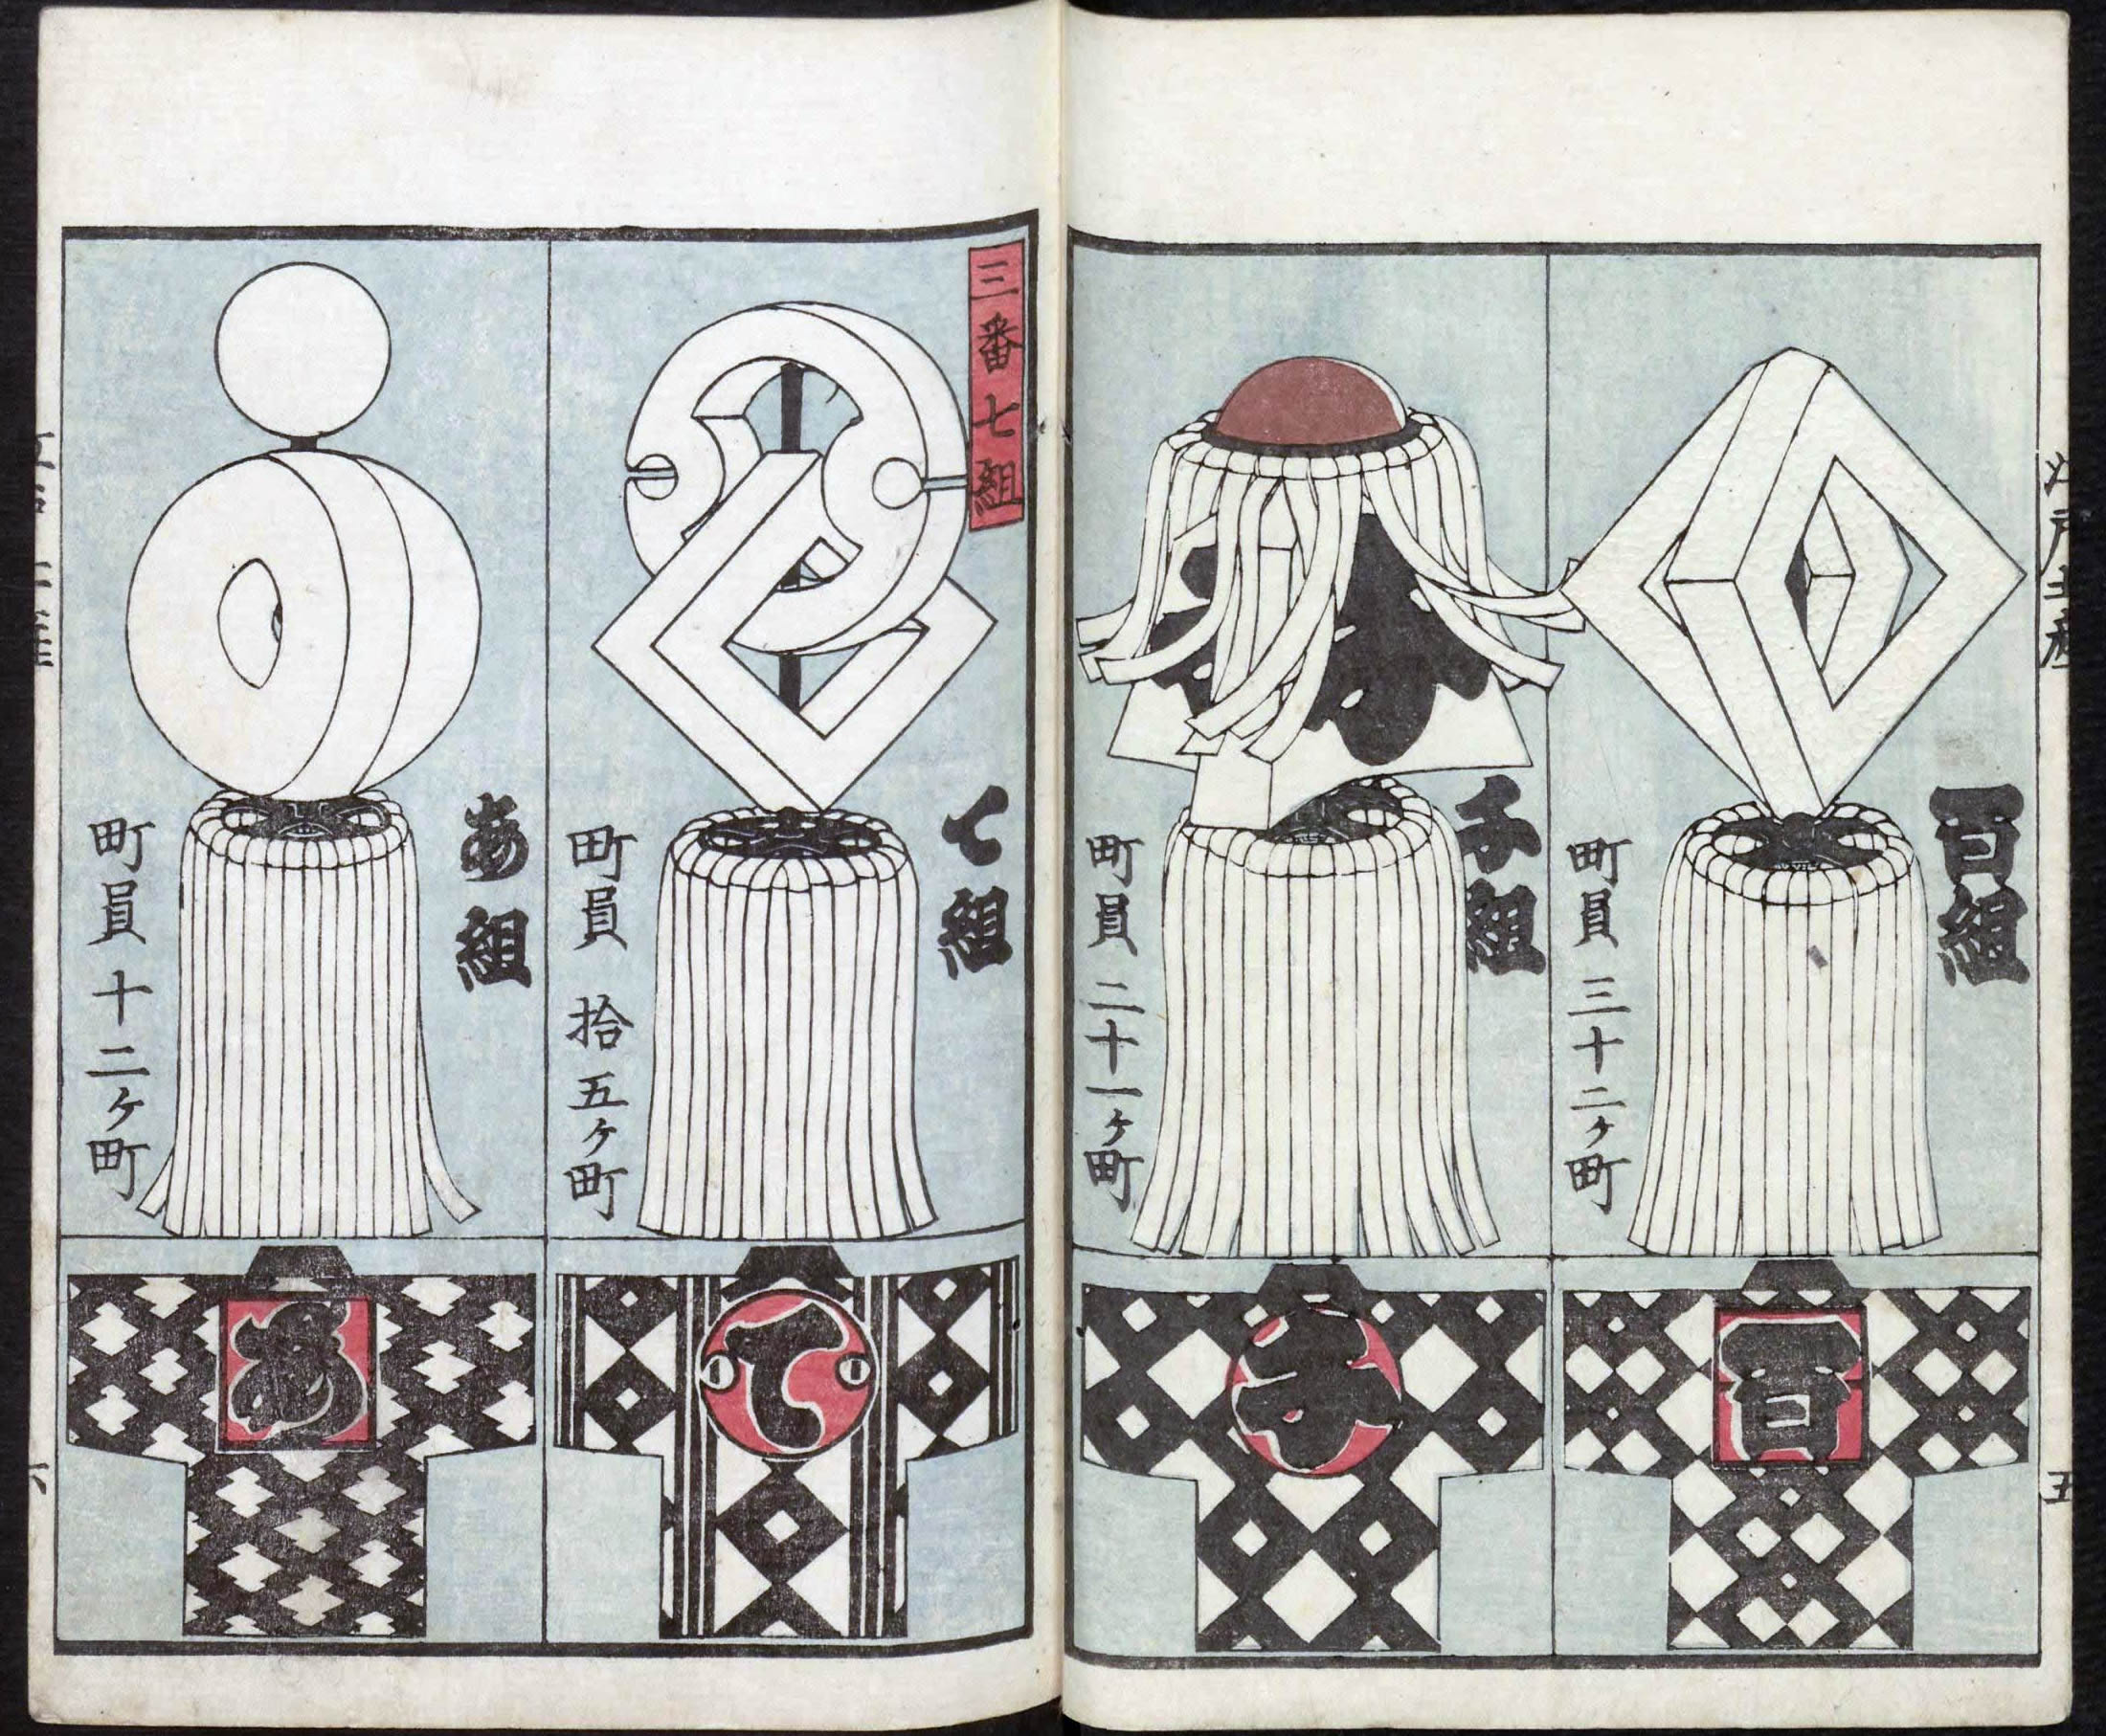 百組
町員 三十二ヶ町
百
千組
町員 二十一ヶ町
千
三番七組
て組
町員 拾五ヶ町
て
あ組
町員 十二ヶ町
あ
五